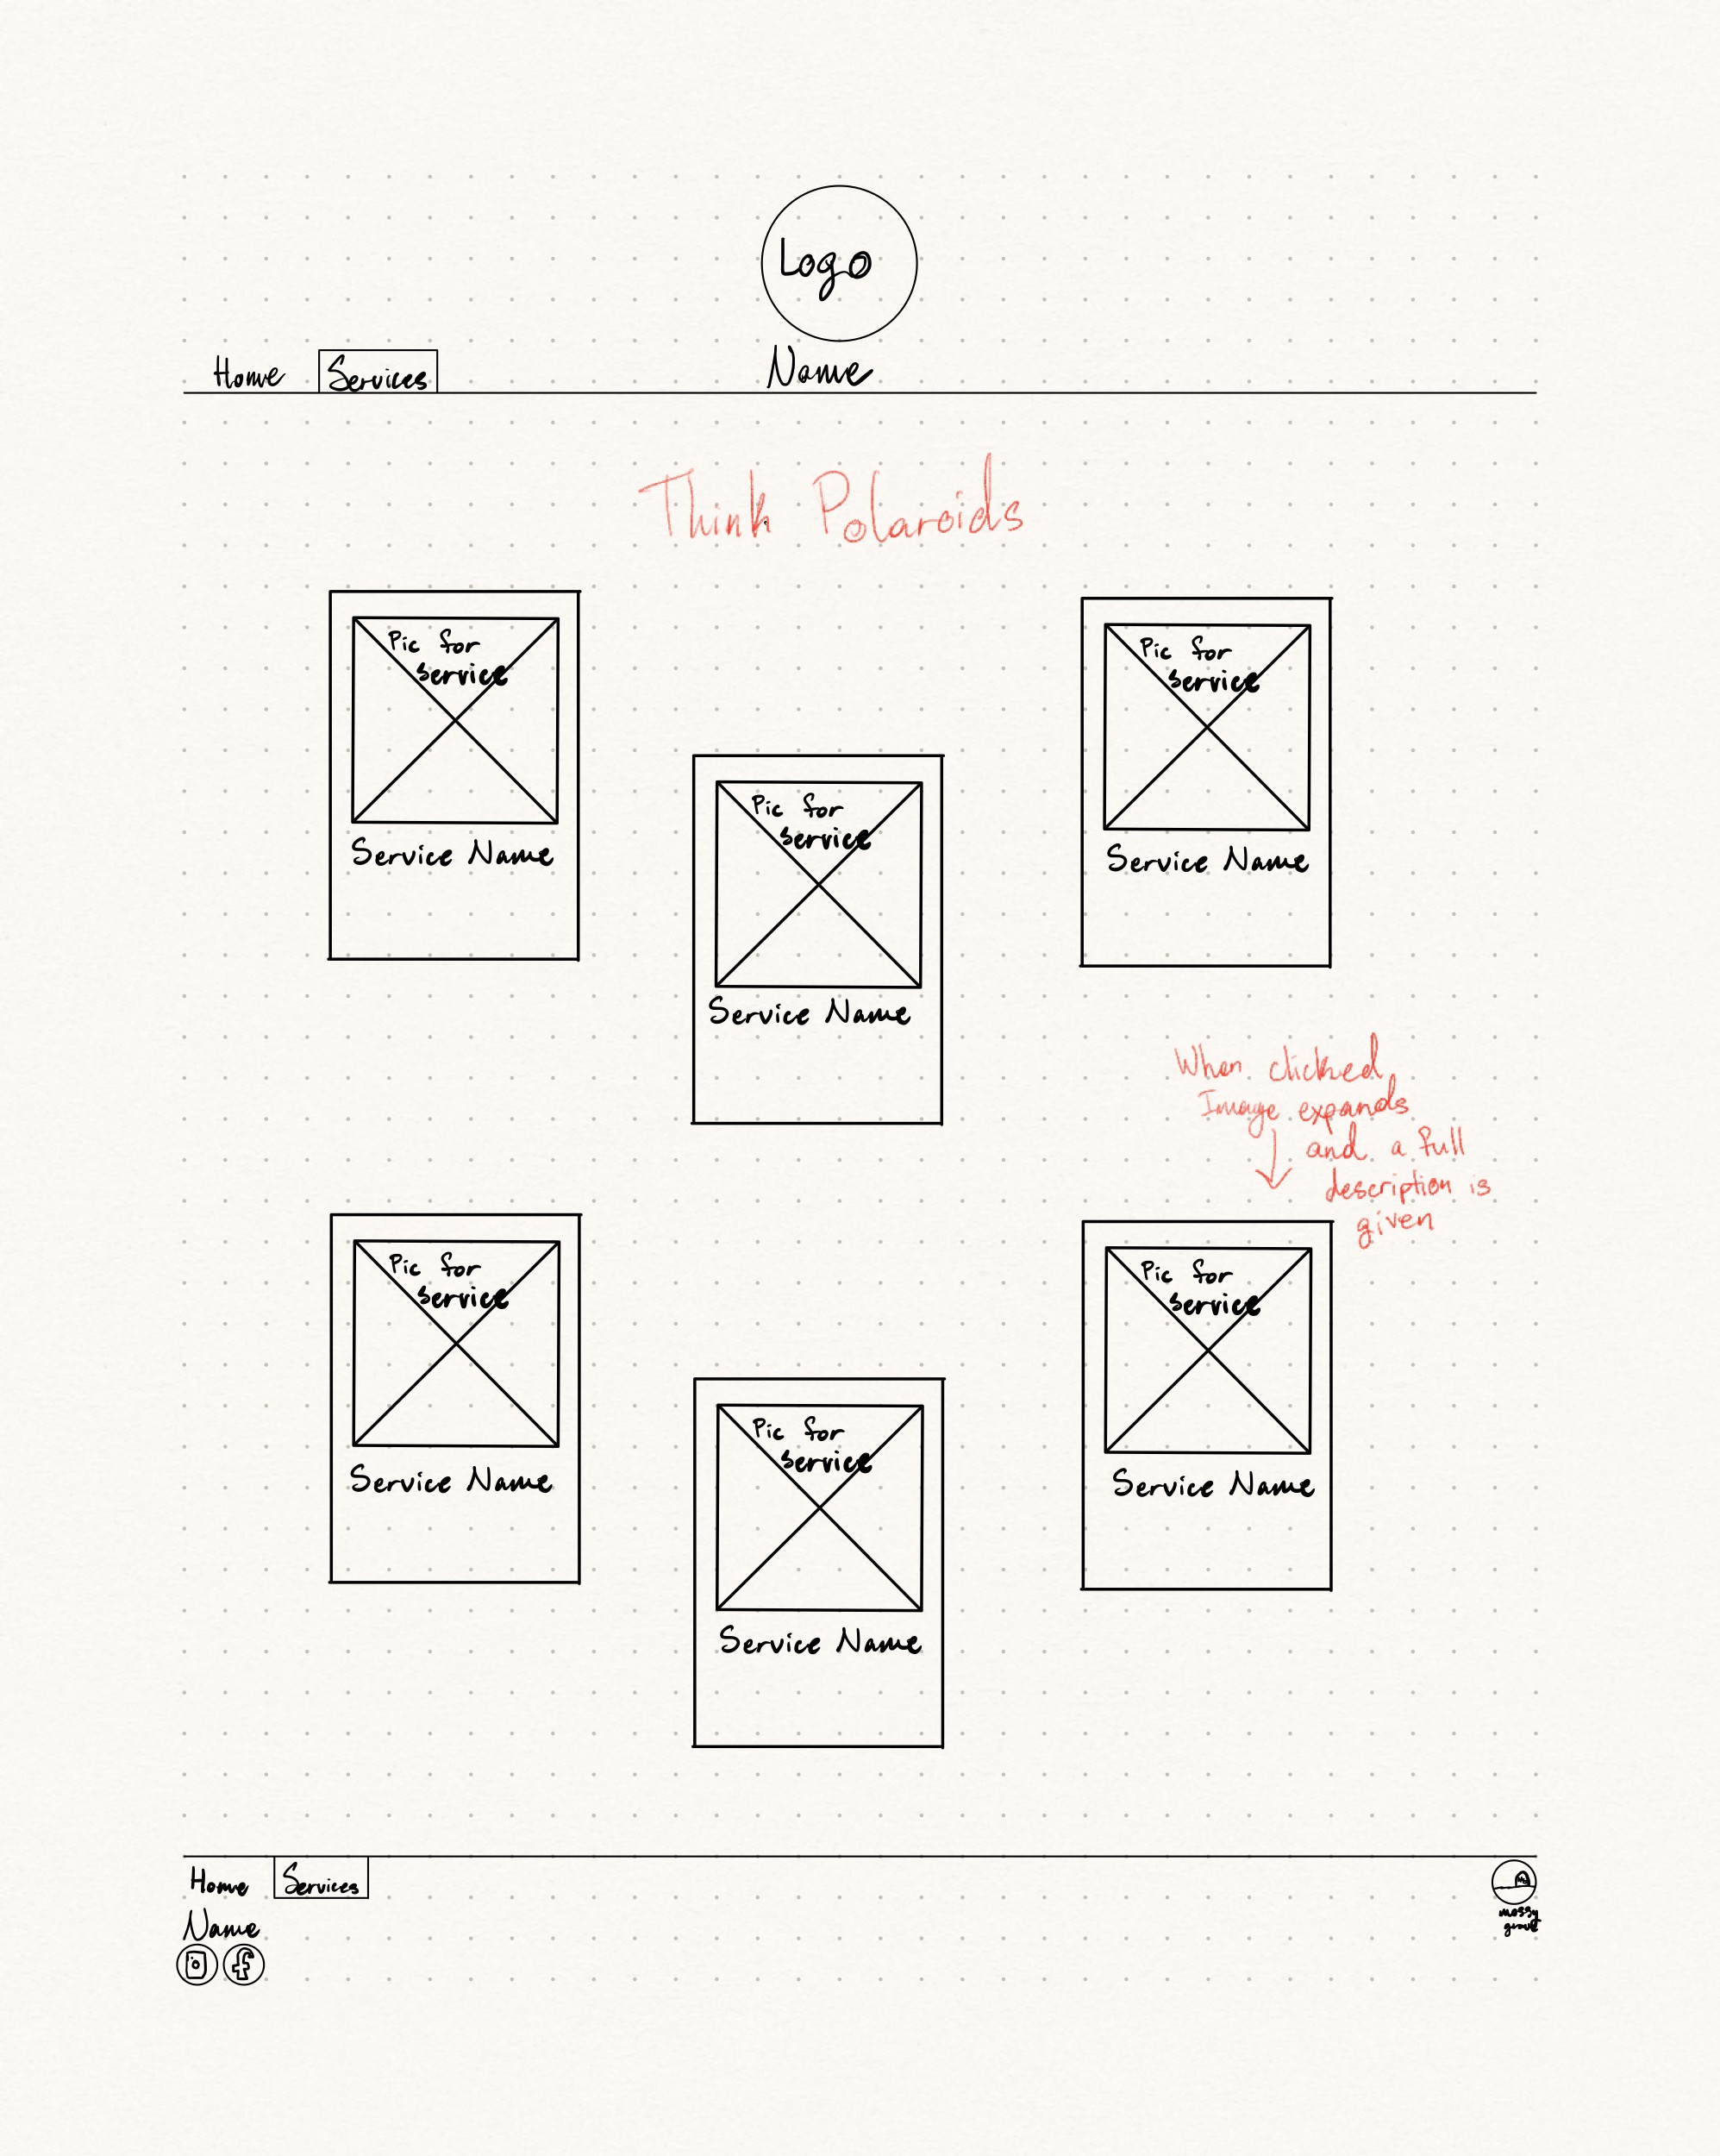 Logo
Home
Services
Name
Think Polaroids
Pic for
service
Service Name
Pic for
service
Service Name
Pic for
service
Service Name
When clicked
Image expands
and a full
description is
given
Pic for
service
Service Name
Pic for
service
Service Name
Pic for
service
Service Name
Home
Services
Name
mossy
grove